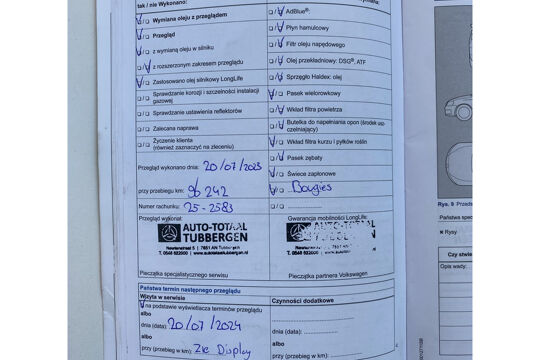 tak / nie Wykonano:
Wymiana oleju z przeglądem
Przegląd
z wymianą oleju w silniku
z rozszerzonym zakresem przeglądu
Zastosowano olej silnikowy LongLife
Sprawdzanie korozji i szczelności instalacji
gazowej
Sprawdzanie ustawienia reflektorów
Zalecana naprawa
Życzenie klienta
(również zaznaczyć na zleceniu)
Przegląd wykonano dnia: 20/07/2023
przy przebiegu km: 96 242
Numer rachunku: 25-2583
Przegląd wykonał:
AUTO-TOTAAL
TUBBERGEN
T. 0546 622000 | www.autototaaltubbergen.nl
Pieczątka specjalistycznego serwisu
AdBlue®:
Płyn hamulcowy
Filtr oleju napędowego
Olej przekładniowy: DSG®, ATF
Sprzęgło Haldex: olej
Pasek wielorowkowy
Wkład filtra powietrza
Butelka do napełniania opon (środek uszczelniający)
Wkład filtra kurzu i pyłków roślin
Pasek zębaty
Świece zapłonowe
Bougies
Gwarancja mobilności LongLife:
Pieczątka partnera Volkswagen
Państwa termin następnego przeglądu
Wizyta w serwisie
na podstawie wyświetlacza terminów przeglądu
albo
dnia (data): 20/07/2024
albo
przy (przebieg w km): Zie Display
Czynności dodatkowe:
albo
dnia (data):
albo
przy (przebieg w km):
Rys. 9
Państwa spec
Rysy
Czy stwie
Opis wady: